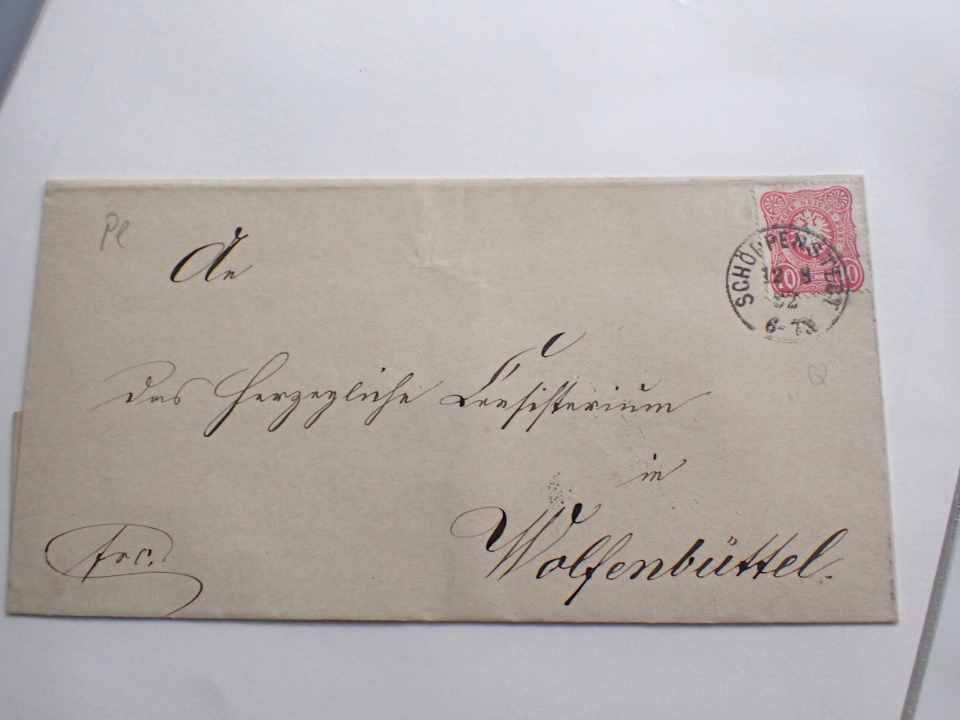 Pl
An
das Herzogliche Consistorium
in
Wolfenbüttel.
frc.
SCHÖPPENSTEDT
12 8
82
6-7N
10 10